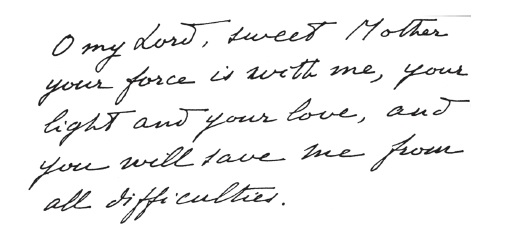 O my Lord, sweet Mother
your force is with me, your
light and your love, and
you will save me from
all difficulties.